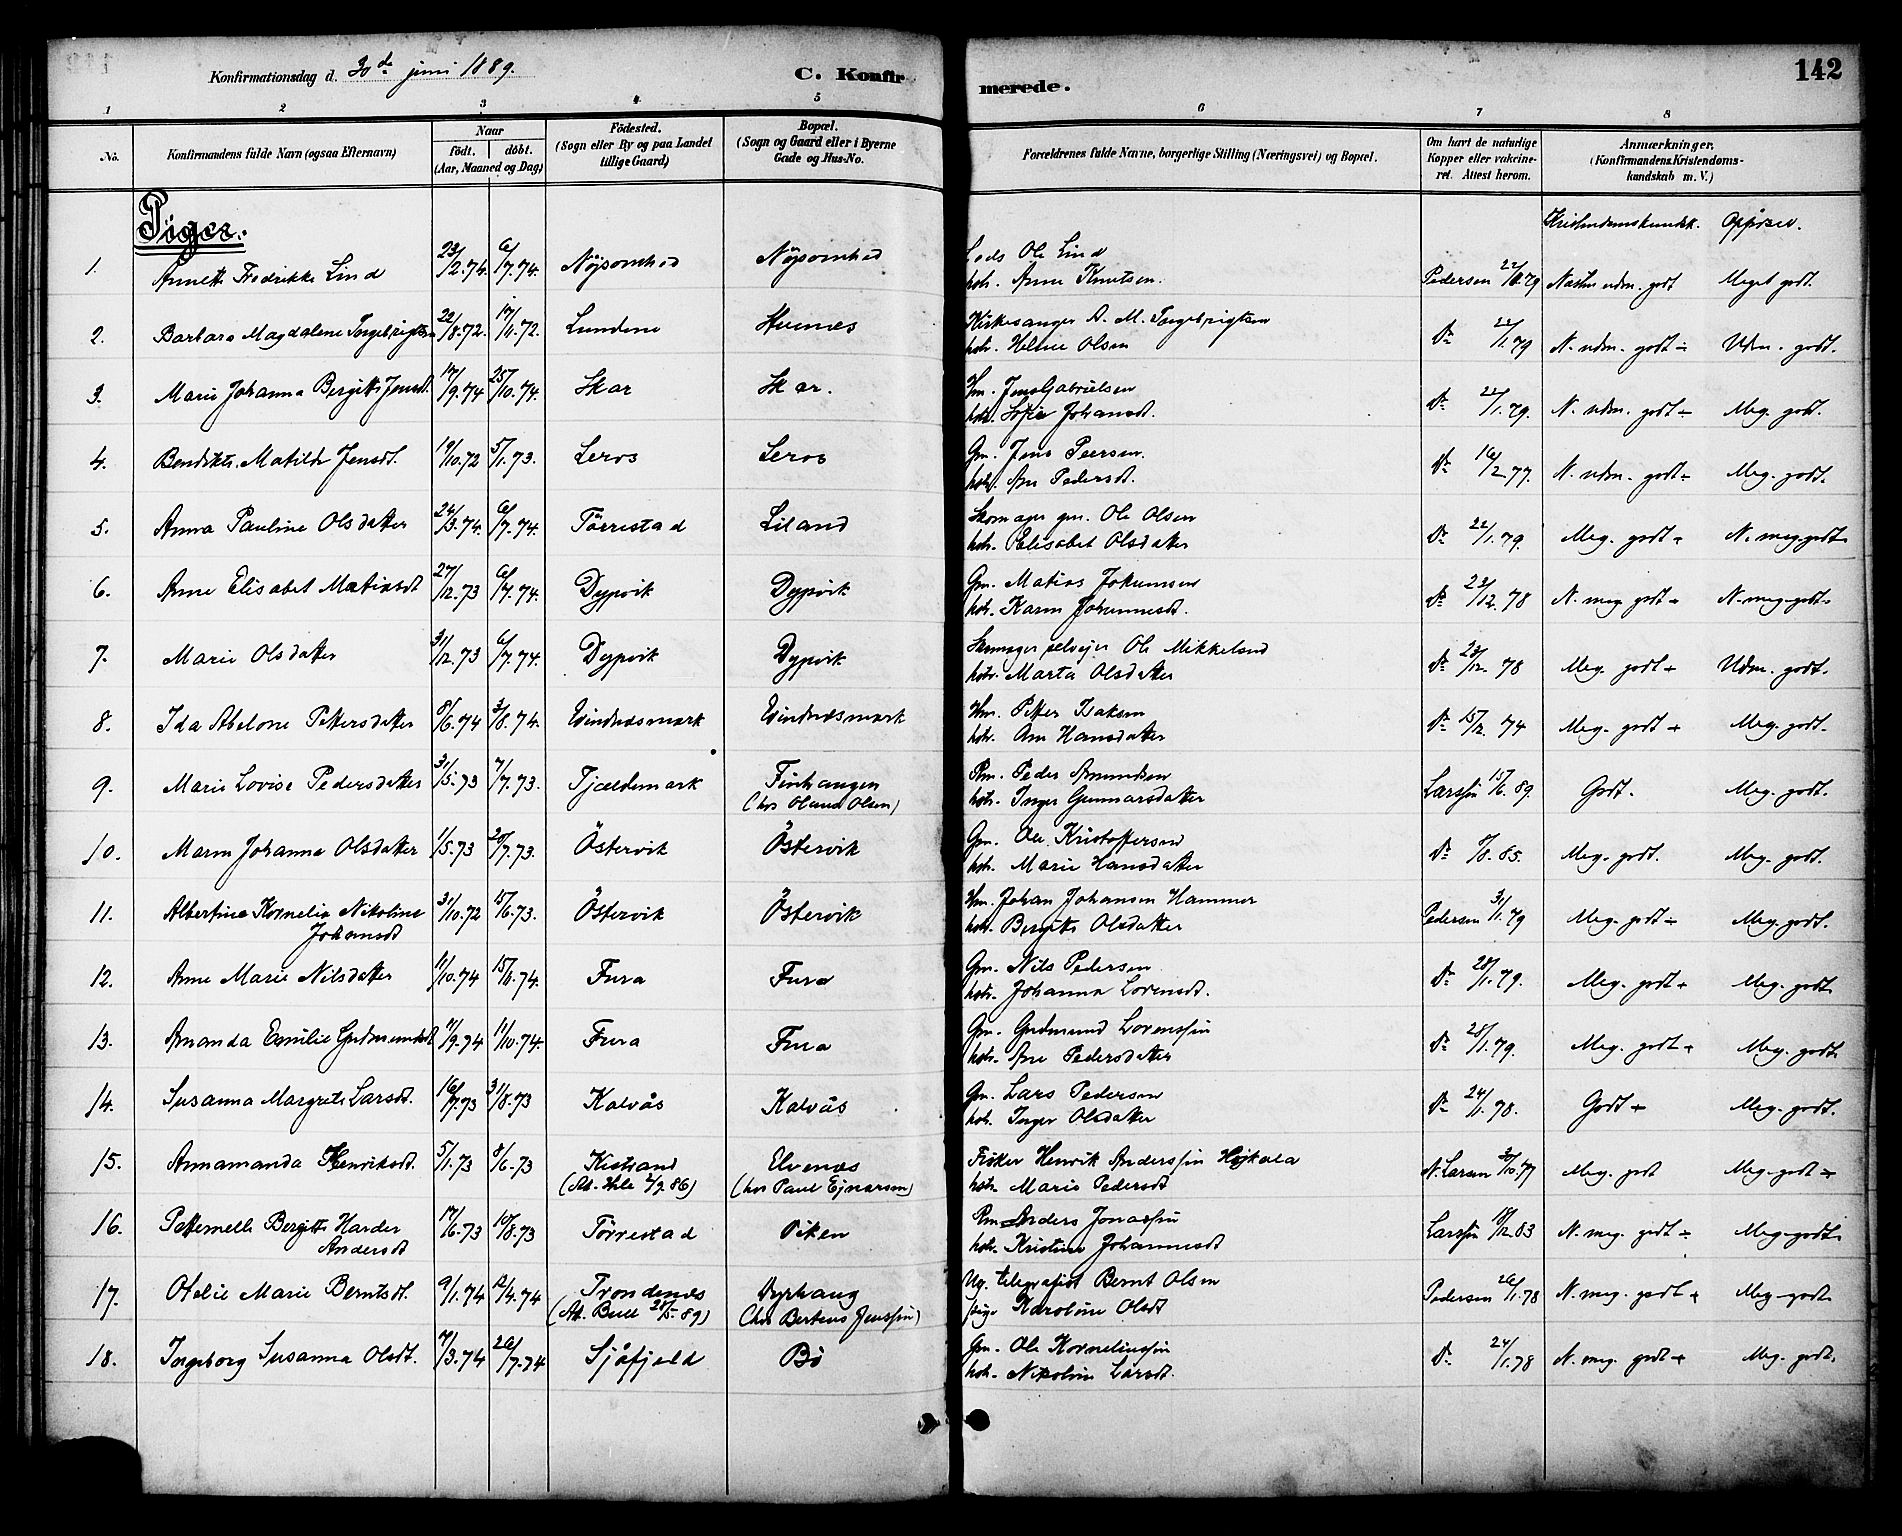 Konfirmationsdag d. 30de juni 1889.
C. Konfir
merede.
142
1 2 3 4 5 6 7 8
No.
Konfirmandens fulde Navn (ogsaa Efternavn)
Naar
födt. döbt.
(Aar, Maaned og Dag)
Födested.
(Sogn eller By og paa Landet
tillige Gaard)
Bopæl.
(Sogn og Gaard eller i Byerne
Gade og Hus-No.
Forældrenes fulde Navne, borgerlige Stilling (Næringsvei) og Bopæl.
Om havt de naturlige
Kopper eller vakcine-
ret. Attest herom.
Anmærkninger,
(Konfirmandens Kristendoms-
kundskab m. V.)
Piger.
Kristendomskundsk. Opförsel.
1. Annette Fredrikke Lind 23/2.74. 6/7.74. Nöjsomhed Nöjsomhed Lods Ole Lind Pedersen 22/1.79 Næsten udm. godt Meget godt.
hstr. Anne Knutsen.
2. Barbara Magdalene Ingebrigtsen 22/8.72. 17/11.72. Lundene Hvenæs Kirkesanger A. M. Ingebrigtsen Do 22/1.79 N. udm. godt Udm. godt.
hstr. Helene Olsen
3. Marie Johanna Bergitte Jensdt. 17/9.74 25/10.74. Skar Skar. Hm. Jens Gabrielsen Do 22/1.79. N. udm. godt Meg. godt.
hstr. Sofie Johansdt.
4. Bendikte Matilde Jensdt. 19/10.72 5/1.73. Leros Leros Gm. Jens Peersen. Do 16/2.77. N. udm. godt Meg. godt.
hstr. Ane Pedersdt.
5. Anna Pauline Olsdatter 24/3.74. 6/7.74. Törrestad Liland Skomager gm. Ole Olsen Do 22/1.79. Meg. godt N. meg godt
hstr. Elisabet Olsdatter
6. Anne Elisabet Matiasdt 27/12.73 6/7.74. Dypvik Dypvik Gm. Matias Jokumsen Do 23/12.78 N. meg. godt N. meg. godt
hstr. Karen Johannesdt.
7. Marie Olsdatter 31/12.73 6/7.74. Dypvik Dypvik Skomager selvejer Ole Mikkelsen Do 23/12.78 Meg. godt Udm. godt.
hstr. Marta Olsdatter
8. Ida Abelone Pettersdatter 8/6.74 3/8.74. Evindnæsmark Evindnæsmark Hm. Petter Isaksen Do 15/12.74 Meg. godt Meg. godt.
hstr. Ane Hansdatter
9. Marie Lovise Pedersdatter 31/5.73 7/7.73. Tjældemark Finhaugen Rm. Peder Amundsen Larssen 15/6.89. Godt. Meg. godt.
(hos Olaus Olsen) hstr. Inger Gunnarsdatter
10. Maren Johanna Olsdatter 1/5.73 20/7.73. Östervik Östervik Gm. Ole Kristoffersen Do /8.85. Meg. godt. Meg. godt.
hstr. Marie Hansdatter
11. Albertine Kornelia Nikoline 31/10.72 15/6.73. Östervik Östervik Hm. Johan Johansen Hammer Pedersen 31/1.79 Meg. godt Meg. godt.
Johansdt hstr. Bergitte Olsdatter
12. Anne Marie Nilsdatter 11/10.74 15/11.74. Fura Fura Gm. Nils Pedersen Do 28/1.79. Meg. godt Meg. godt
hstr. Johanna Lorensdt.
13. Amanda Emilie Gudmundsdt 7/9.74 11/10.74. Fura Fura Gm. Gudmund Lorenssen Do 28/1.79. Meg. godt Meg. godt
hstr. Ane Pedersdatter
14. Susanna Margrete Larsdt. 16/7.73 31/8.73 Kalvås Kalvås Gm. Lars Pedersen Do 24/1.78. Godt Meg. godt.
hstr. Inger Olsdatter
15. Annamanda Henriksdt. 5/1.73 8/6.73 Kistrand Elvenæs Fisker Henrik Anderssen Hejkala N. Larsen 30/10.77 Meg. godt Meg. godt
(Att. Hvle 2/9.86) (hos Paul Ejnarsen) hstr. Marie Pedersdt
16. Petternelle Bergitte Harder 17/6.73 10/8.73 Törrestad Viken Rm. Anders Jonassen Larssen 18/12.83 N. meg. godt Meg. godt
Andersdt hstr. Kristine Johannesdt
17. Otelie Marie Berntsdt. 9/1.74 12/4.74 Trondenæs Dyrhaug Ug. telegrafist Bernt Olsen Pedersen 26/1.78 N. meg. godt Meg. godt
(Att. Bull 28/5.89) (hos Berteus Jenssen) pige Karoline Olsdt
18. Ingeborg Susanna Olsdt. 7/3.74 26/7.74 Sjåfjeld Bö Gm. Ole Korneliussen Do 24/1.78 N. meg. godt Meg. godt.
hstr. Nikoline Larsdt.